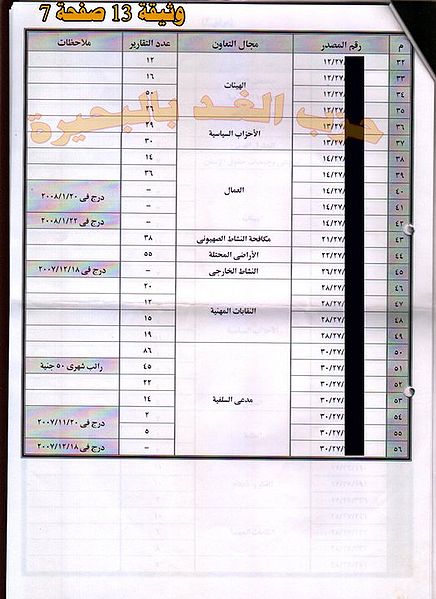 وثيقة 13 صفحة 7
م رقم المصدر مجال التعاون عدد التقارير ملاحظات
٣٢ ١٢/٢٧/ ١٢
٣٣ ١٢/٢٧/ ١٦
الهيئات
٣٤ ١٢/٢٧/ ٥٠
٣٥ ١٢/٢٧/
حزب الغد بالبحيرة
٣٦ ١٣/٢٧/ الأحزاب السياسية ٢٩
٣٧ ١٣/٢٧/ ٣٠
٣٨ ١٤/٢٧/ ١٤
٣٩ ١٤/٢٧/ ٣٦
٤٠ ١٤/٢٧/ العمال – درج فى ٢٠٠٨/١/٢٠
٤١ ١٤/٢٧/ –
٤٢ ١٤/٢٧/ – درج فى ٢٠٠٨/١/٢٢
٤٣ ٢١/٢٧/ مكافحة النشاط الصهيونى ٣٨
٤٤ ٢٢/٢٧/ الأراضى المحتلة ٥٥
٤٥ ٢٦/٢٧/ النشاط الخارجى – درج فى ٢٠٠٧/١٢/١٨
٤٦ ٢٨/٢٧/ ٢٠
٤٧ ٢٨/٢٧/ النقابات المهنية ١٢
٤٨ ٢٨/٢٧/ ١٥
٤٩ ٢٨/٢٧/ ١٩
٥٠ ٣٠/٢٧/ ٨٦
٥١ ٣٠/٢٧/ ٤٥ راتب شهرى ٥٠ جنية
٥٢ ٣٠/٢٧/ ٢٢
٥٣ ٣٠/٢٧/ مدعى السلفية ١٤
٥٤ ٣٠/٢٧/ ٢
٥٥ ٣٠/٢٧/ ٥ درج فى ٢٠٠٧/١١/٢٠
٥٦ ٣٠/٢٧/ – درج فى ٢٠٠٧/١٢/١٨